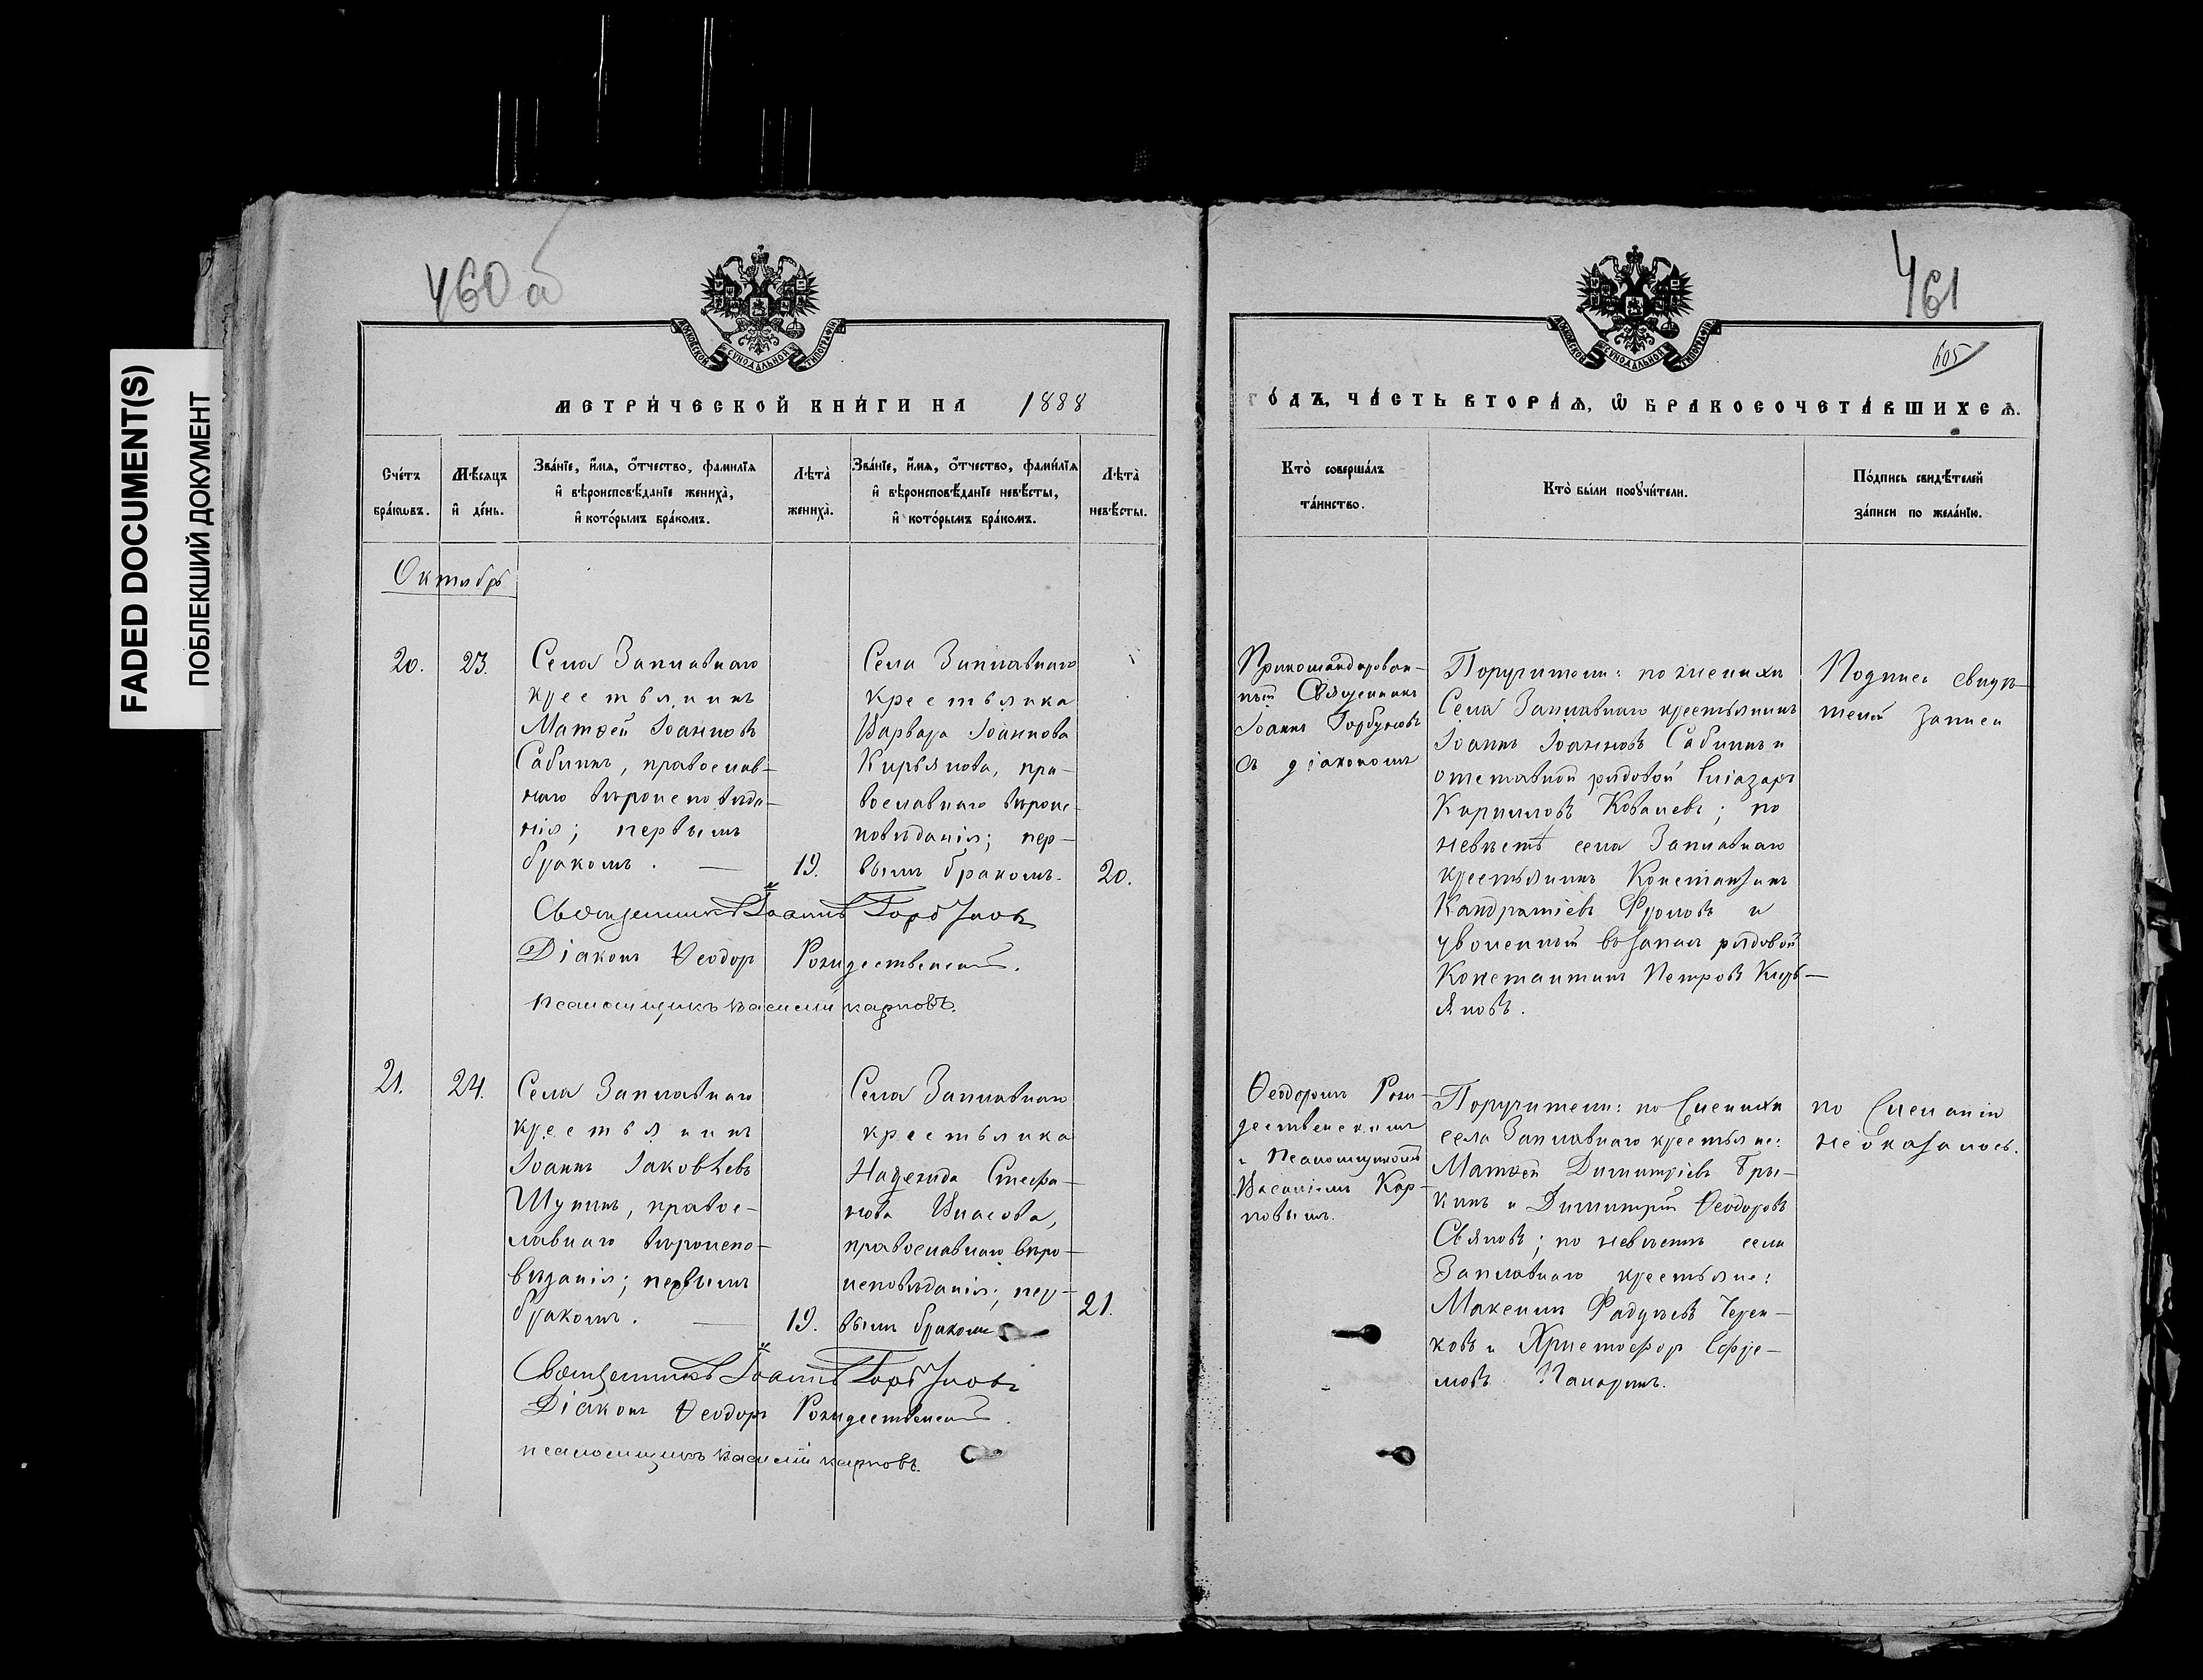 FADED DOCUMENT(S)
ПОБЛЕКШИЙ ДОКУМЕНТ
460 об
МОСКОВСКОЙ СѴНОДАЛЬНОЙ ТИПОГРАФІИ
МЕТРИ́ЧЕСКОЙ КНИ́ГИ НА 1888
Сче́тъ бра́ковъ.
Мѣ́сяцъ и҆ де́нь.
Зва́нїе, и҆́мя, ѻ҆́тчество, фами́лїя и҆ вѣроисповѣ́данїе жениха̀, и҆ кото́рымъ бра́комъ.
Лѣта̀ жениха̀.
Зва́нїе, и҆́мя, ѻ҆́тчество, фами́лїя и҆ вѣроисповѣ́данїе невѣ́сты, и҆ кото́рымъ бра́комъ.
Лѣта̀ невѣ́сты.
Октябрь
20.
23.
Села Заплавнаго
крестьянинъ
Матѳей Іоанновъ
Сабининъ, православ-
наго вѣроисповѣда-
нія; первымъ
бракомъ. —
19.
Села Заплавнаго
крестьянка
Варвара Іоаннова
Кирьянова, пра-
вославнаго вѣроис-
повѣданія; пер-
вымъ бракомъ.
20.
Священникъ Іоаннъ Горбуновъ
Діаконъ Ѳеодоръ Рождественскій.
Псаломщикъ Василій Карповъ.
21.
24.
Села Заплавнаго
крестьянинъ
Іоаннъ Іаковлевъ
Шунинъ, правос-
лавнаго вѣроиспо-
вѣданія; первымъ
бракомъ. —
19.
Села Заплавнаго
крестьянка
Надежда Стефа-
нова Власова,
православнаго вѣро-
исповѣданія; пер-
вымъ бракомъ
21.
Священникъ Іоаннъ Горбуновъ
Діаконъ Ѳеодоръ Рождественскій.
псаломщикъ Василій Карповъ.
461
605
МОСКОВСКОЙ СѴНОДАЛЬНОЙ ТИПОГРАФІИ
ГО́ДЪ, ЧА́СТЬ ВТОРА́Ѧ, Ѡ҆ БРАКОСОЧЕТА́ВШИХСѦ.
Кто̀ соверша́лъ та́инство.
Кто̀ бы́ли порꙋчи́тели.
По́дпись свидѣ́телей за́писи по жела́нїю.
Прикомандирован-
ный Священникъ
Іоаннъ Горбуновъ
съ діакономъ
Поручители: по женихѣ
Села Заплавнаго крестьянинъ
Іоаннъ Іоанновъ Сабининъ и
отставной рядовой Еліазаръ
Кирилловъ Ковалевъ; по
невѣстѣ села Заплавнаго
крестьянинъ Константинъ
Кандратіевъ Фроловъ и
уволенный въ запасъ рядовой
Константинъ Петровъ Кирь-
яновъ.
Подписи свидѣ-
телей записи
Ѳеодоромъ Рож-
дественскимъ
и Псаломщикомъ
Василіемъ Кар-
повымъ.
Поручители: по женихѣ
села Заплавнаго крестьяне:
Матѳей Димитріевъ Бры-
кинъ и Димитрій Ѳеодоровъ
Свяновъ; по невѣстѣ села
Заплавнаго крестьяне:
Максимъ Фадѣевъ Черен-
ковъ и Христофоръ Ефре-
мовъ Панаринъ.
по желанію
не оказалось.